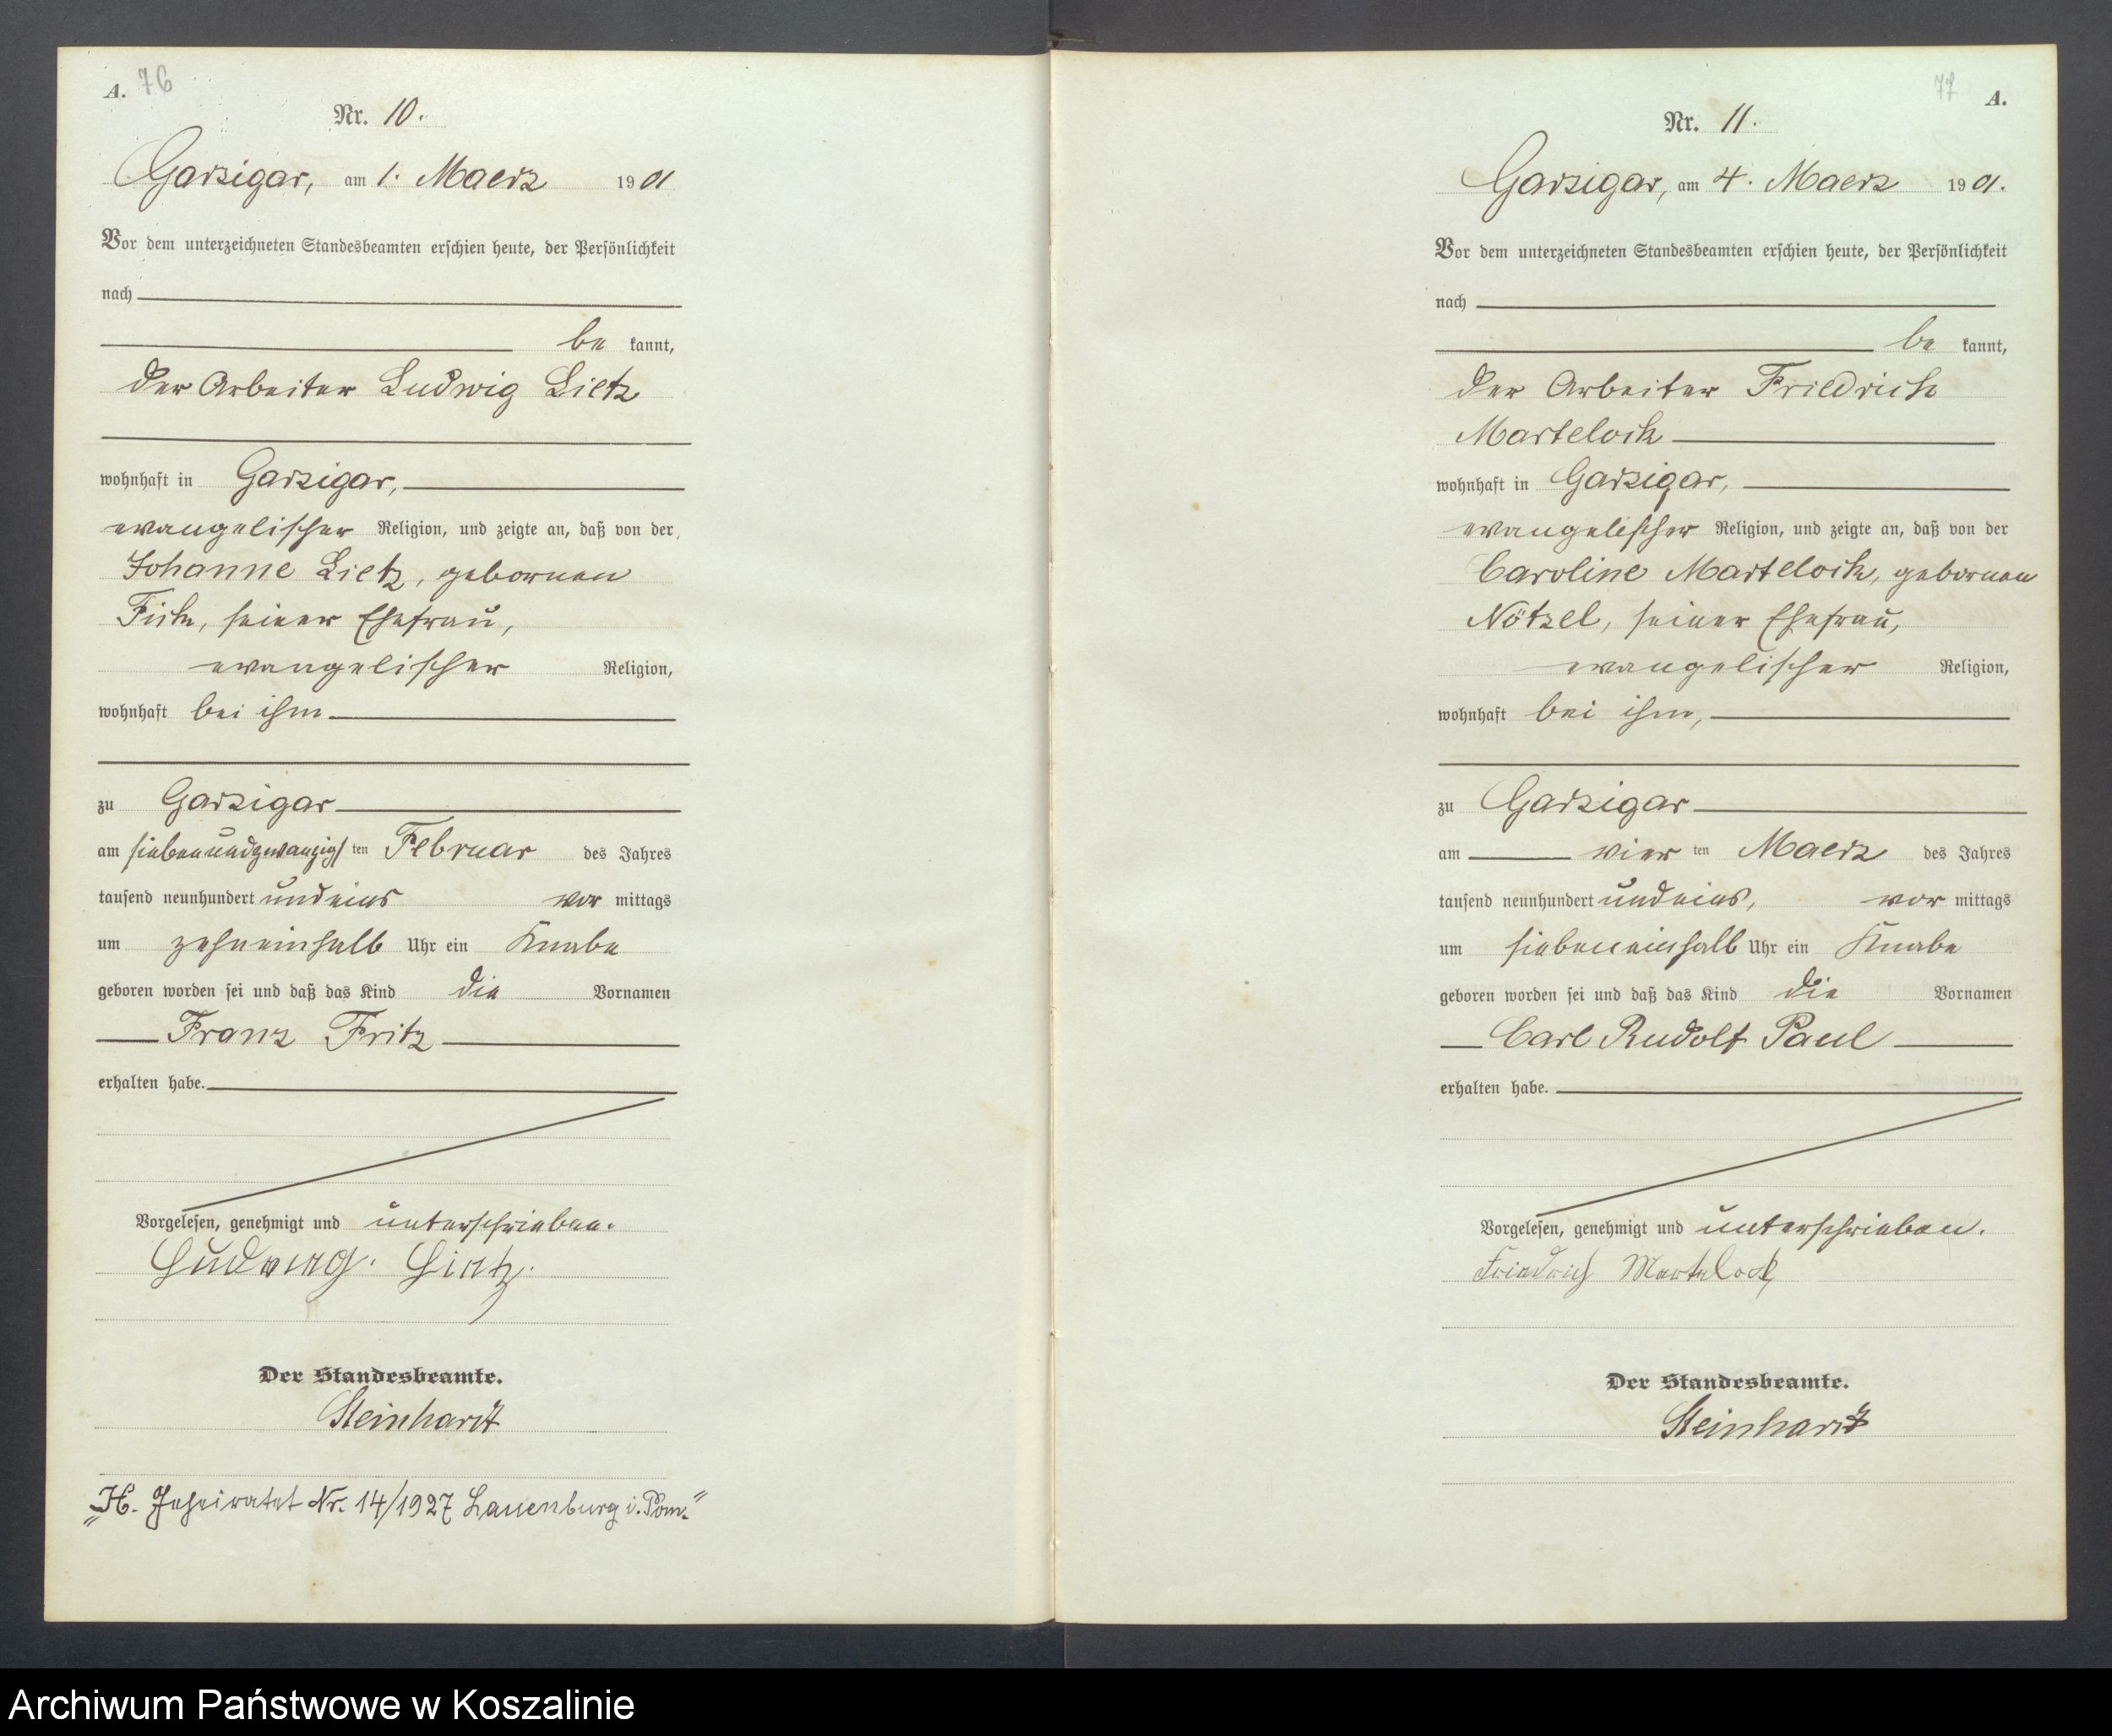 A. 76
Nr. 10.
Garzigar, am 1. Maerz 1901
Vor dem unterzeichneten Standesbeamten erschien heute, der Persönlichkeit
nach
be kannt,
der Arbeiter Ludwig Lietz
wohnhaft in Garzigar,
evangelischer Religion, und zeigte an, daß von der
Johanne Lietz, gebornen
Fick, seiner Ehefrau,
evangelischer Religion,
wohnhaft bei ihm
zu Garzigar
am siebenundzwanzigs ten Februar des Jahres
tausend neunhundert undeins vor mittags
um zehneinhalb Uhr ein Knabe
geboren worden sei und daß das Kind die Vornamen
Franz Fritz
erhalten habe.
Vorgelesen, genehmigt und unterschrieben.
Ludwig. Lietz.
Der Standesbeamte.
Steinhardt
„H. Geheiratet Nr. 14/1927 Lauenburg i. Pom."
77 A.
Nr. 11.
Garzigar, am 4. Maerz 1901.
Vor dem unterzeichneten Standesbeamten erschien heute, der Persönlichkeit
nach
be kannt,
der Arbeiter Friedrich
Martelock
wohnhaft in Garzigar,
evangelischer Religion, und zeigte an, daß von der
Caroline Martelock, gebornen
Nötzel, seiner Ehefrau,
evangelischer Religion,
wohnhaft bei ihm,
zu Garzigar
am vier ten Maerz des Jahres
tausend neunhundert undeins, vor mittags
um siebeneinhalb Uhr ein Knabe
geboren worden sei und daß das Kind die Vornamen
Carl Rudolf Paul
erhalten habe.
Vorgelesen, genehmigt und unterschrieben.
Friedrich Martelock
Der Standesbeamte.
Steinhardt
Archiwum Państwowe w Koszalinie